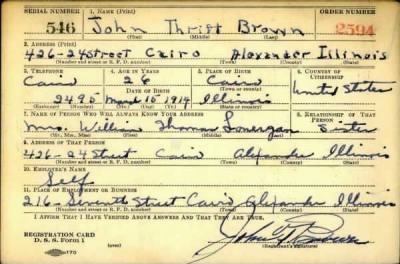 SERIAL NUMBER 1. NAME (Print) ORDER NUMBER
546 John Thrift Brown 2594
(First) (Middle) (Last)
2. ADDRESS (Print)
426-24 Street Cairo Alexander Illinois
(Number and street or R. F. D. number) (Town) (County) (State)
3. TELEPHONE 4. AGE IN YEARS 5. PLACE OF BIRTH 6. COUNTRY OF CITIZENSHIP
Cairo 26 Cairo
DATE OF BIRTH (Town or county) United States
2490 March 15 1914 Illinois
(Exchange) (Number) (Mo.) (Day) (Yr.) (State or country)
7. NAME OF PERSON WHO WILL ALWAYS KNOW YOUR ADDRESS 8. RELATIONSHIP OF THAT PERSON
Mrs. William Thomas Lonergan Sister
(Mr., Mrs., Miss) (First) (Middle) (Last)
9. ADDRESS OF THAT PERSON
426-24 Street Cairo Alexander Illinois
(Number and street or R. F. D. number) (Town) (County) (State)
10. EMPLOYER'S NAME
Self
11. PLACE OF EMPLOYMENT OR BUSINESS
216-Seventh Street Cairo Alexander Illinois
(Number and street or R. F. D. number) (Town) (County) (State)
I AFFIRM THAT I HAVE VERIFIED ABOVE ANSWERS AND THAT THEY ARE TRUE.
REGISTRATION CARD
D. S. S. Form 1
John T Brown
(Registrant's signature)